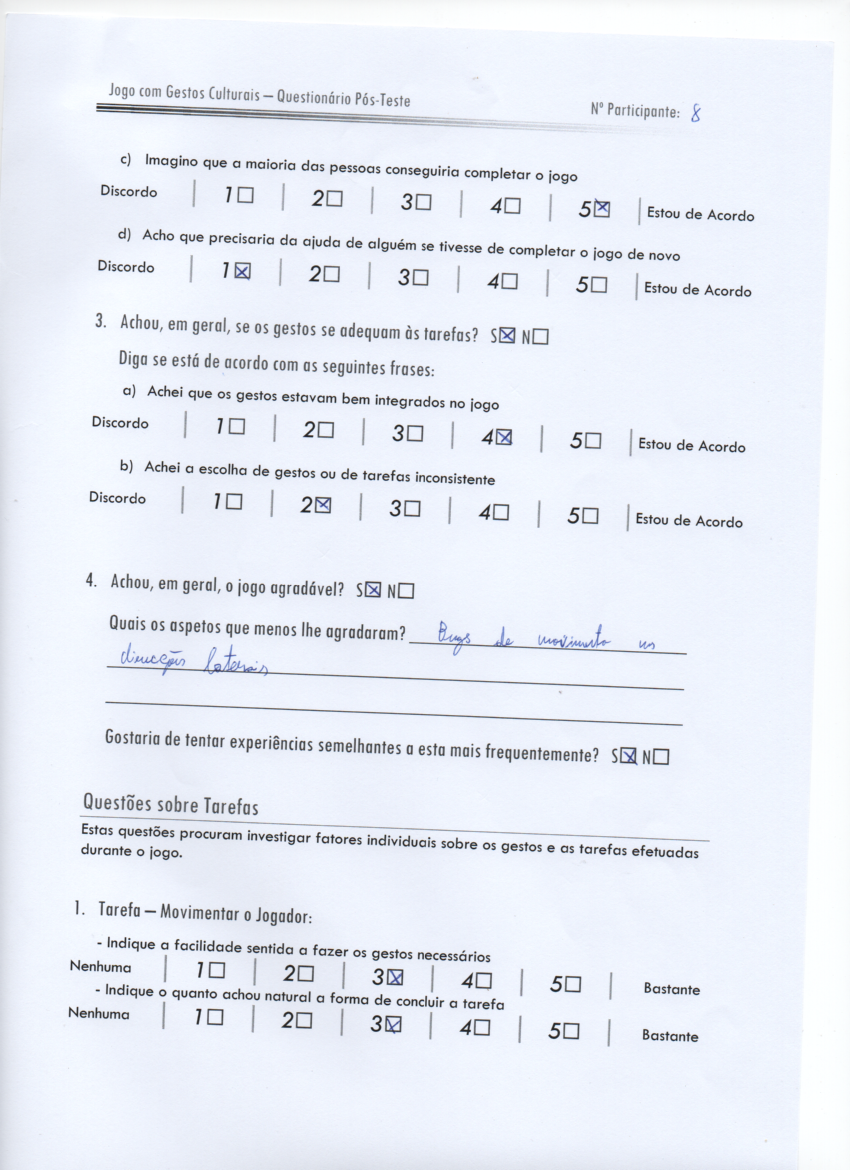 Jogo com Gestos Culturais – Questionário Pós-Teste
Nº Participante: 8
c) Imagino que a maioria das pessoas conseguiria completar o jogo
Discordo | 1☐ | 2☐ | 3☐ | 4☐ | 5☒ | Estou de Acordo
d) Acho que precisaria da ajuda de alguém se tivesse de completar o jogo de novo
Discordo | 1☒ | 2☐ | 3☐ | 4☐ | 5☐ | Estou de Acordo
3. Achou, em geral, se os gestos se adequam às tarefas? S☒ N☐
Diga se está de acordo com as seguintes frases:
a) Achei que os gestos estavam bem integrados no jogo
Discordo | 1☐ | 2☐ | 3☐ | 4☒ | 5☐ | Estou de Acordo
b) Achei a escolha de gestos ou de tarefas inconsistente
Discordo | 1☐ | 2☒ | 3☐ | 4☐ | 5☐ | Estou de Acordo
4. Achou, em geral, o jogo agradável? S☒ N☐
Quais os aspetos que menos lhe agradaram? Bugs de movimento
direcções laterais
Gostaria de tentar experiências semelhantes a esta mais frequentemente? S☒ N☐
Questões sobre Tarefas
Estas questões procuram investigar fatores individuais sobre os gestos e as tarefas efetuadas
durante o jogo.
1. Tarefa – Movimentar o Jogador:
- Indique a facilidade sentida a fazer os gestos necessários
Nenhuma | 1☐ | 2☐ | 3☒ | 4☐ | 5☐ | Bastante
- Indique o quanto achou natural a forma de concluir a tarefa
Nenhuma | 1☐ | 2☐ | 3☒ | 4☐ | 5☐ | Bastante